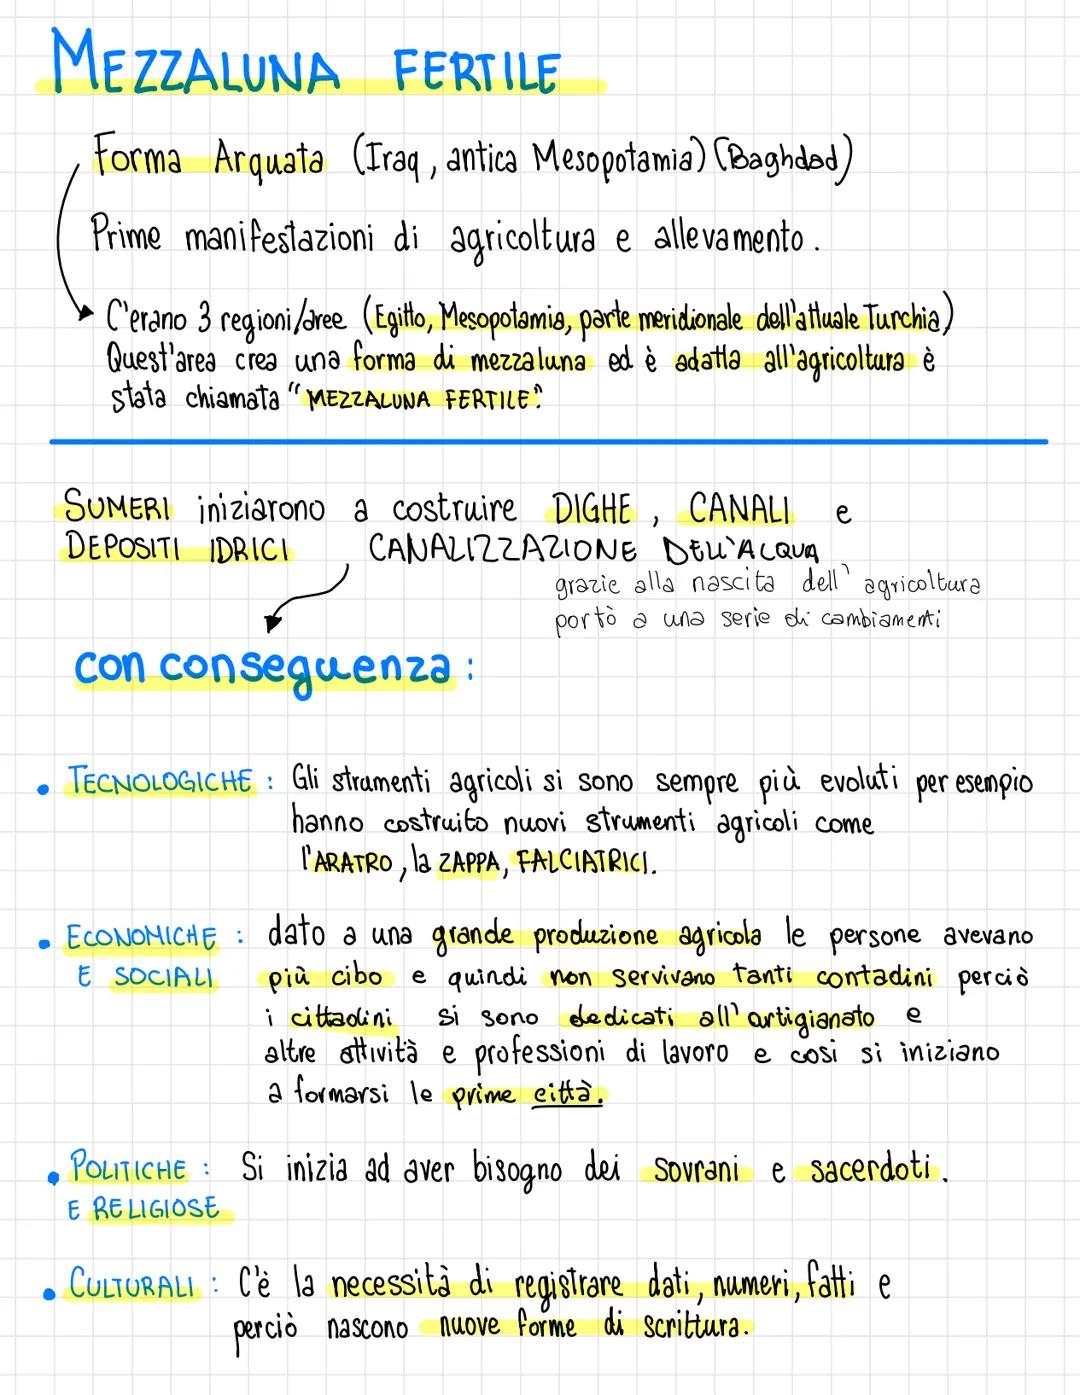 MEZZALUNA FERTILE
Forma Arquata (Iraq, antica Mesopotamia) (Baghdad)
Prime manifestazioni di agricoltura e allevamento.
C'erano 3 regioni/aree (Egitto, Mesopotamia, parte meridionale dell'attuale Turchia)
Quest'area crea una forma di mezzaluna ed è adatta all'agricoltura è
stata chiamata "MEZZALUNA FERTILE".
SUMERI iniziarono a costruire DIGHE, CANALI e
DEPOSITI IDRICI CANALIZZAZIONE DELL'ACQUA
grazie alla nascita dell'agricoltura
portò a una serie di cambiamenti
con conseguenza:
• TECNOLOGICHE: Gli strumenti agricoli si sono sempre più evoluti per esempio
hanno costruito nuovi strumenti agricoli come
l'ARATRO, la ZAPPA, FALCIATRICI.
• ECONOMICHE: dato a una grande produzione agricola le persone avevano
E SOCIALI più cibo e quindi non servivano tanti contadini perciò
i cittadini si sono dedicati all'artigianato e
altre attività e professioni di lavoro e cosi si iniziano
a formarsi le prime città.
• POLITICHE: Si inizia ad aver bisogno dei sovrani e sacerdoti.
E RELIGIOSE
• CULTURALI: C'è la necessità di registrare dati, numeri, fatti e
perciò nascono nuove forme di scrittura.